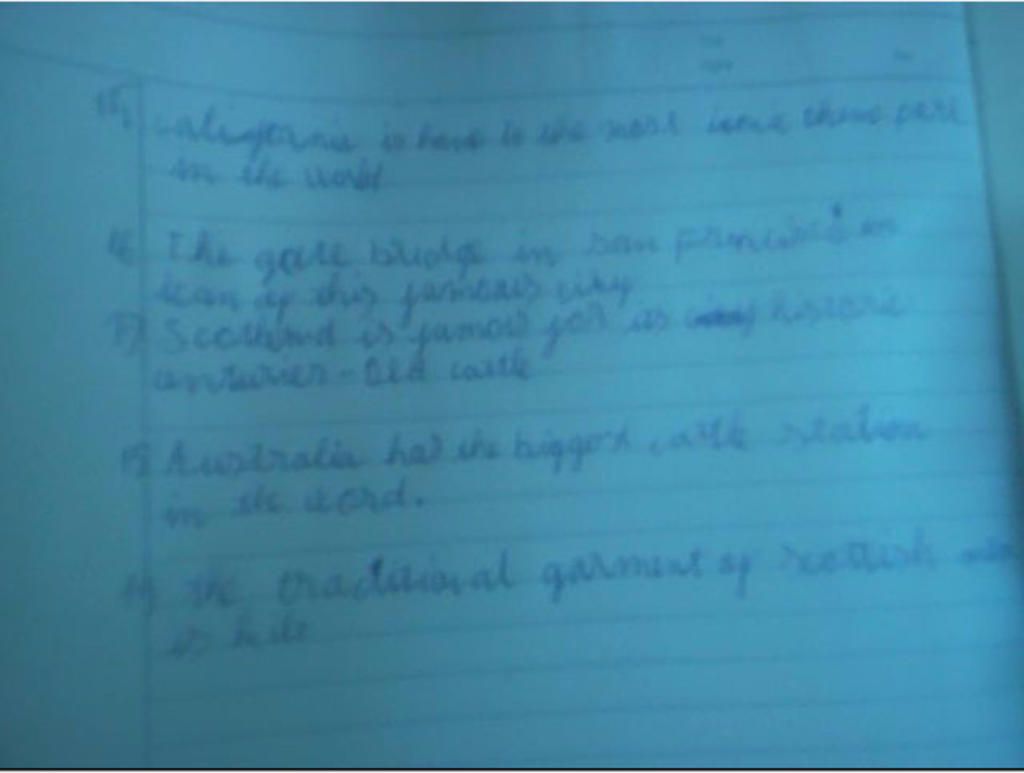 15, California is home to the most iconic theme park
in the world
16 The gate bridge in san francisco in
icon of this famous city
17) Scotland is famous for its historic
centuries-old castle
18 Australia has the biggest cattle station
in the word.
19 the traditional garment of scottish men
is kilt